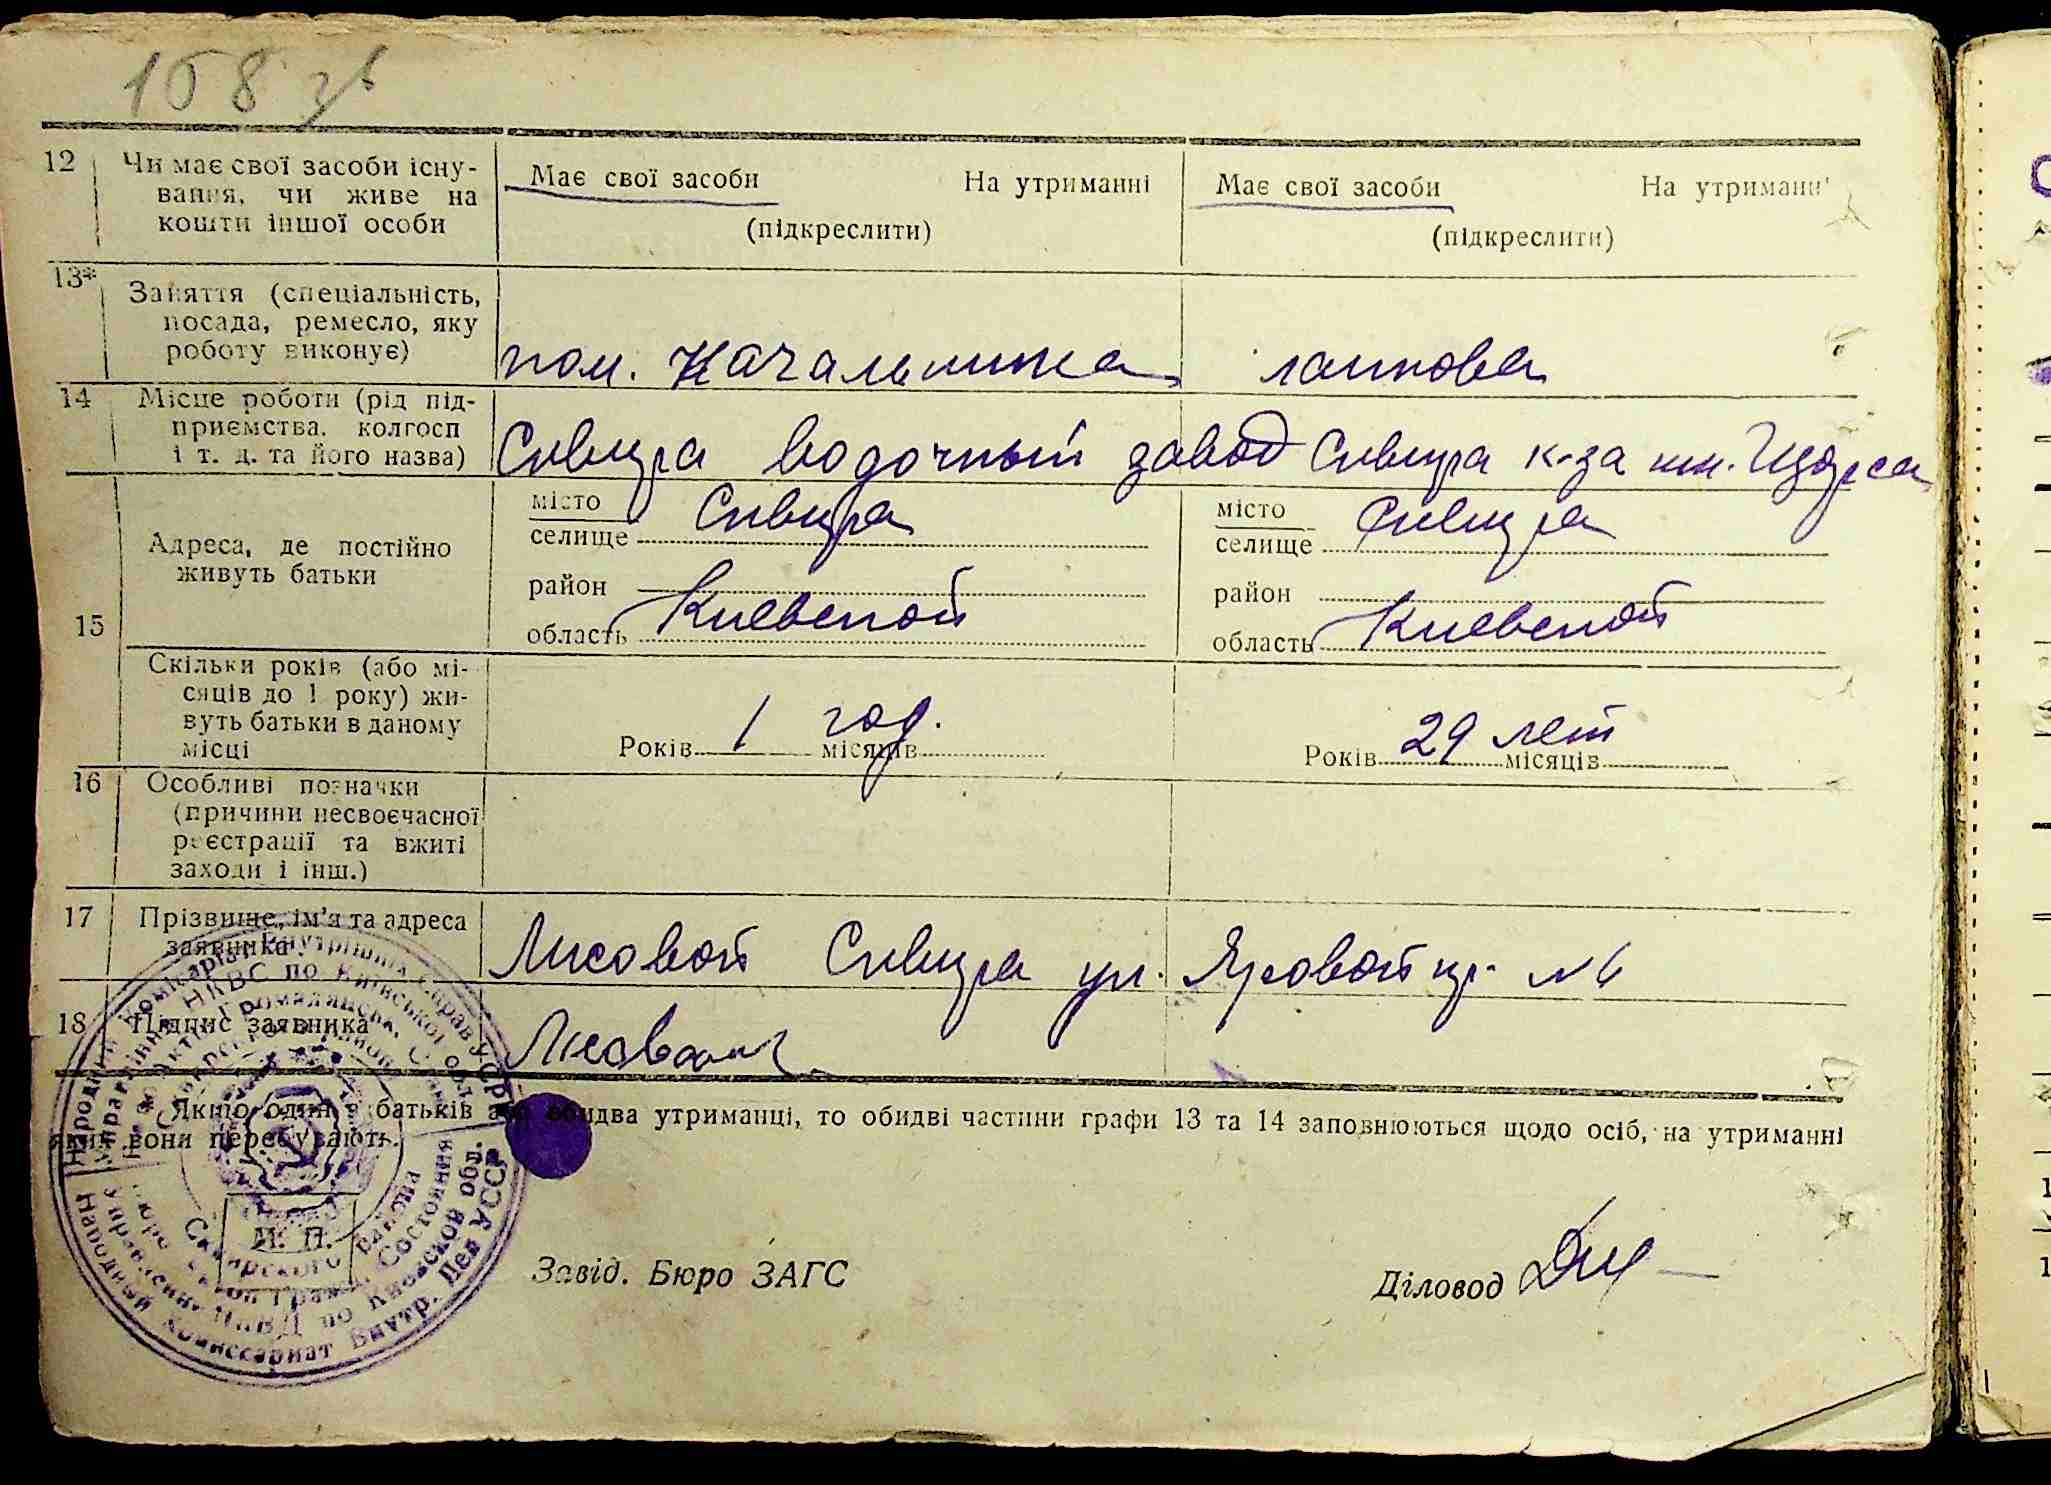 158 зв
12 Чи має свої засоби існу-
вання, чи живе на
кошти іншої особи
Має свої засоби На утриманні
(підкреслити)
Має свої засоби На утриманні
(підкреслити)
13* Заняття (спеціальність,
посада, ремесло, яку
роботу виконує)
пом. Начальника
ланкова
14 Місце роботи (рід під-
приємства, колгосп
і т. д. та його назва)
Сквира водочный завод
Сквира к-за им. Щорса
15
Адреса, де постійно
живуть батьки
місто
селище Сквира
район
область Киевской
місто
селище Сквира
район
область Киевской
Скільки років (або мі-
сяців до 1 року) жи-
вуть батьки в даному
місці
Років 1 год. місяців
Років 29 лет місяців
16 Особливі позначки
(причини несвоєчасної
реєстрації та вжиті
заходи і інш.)
17 Прізвище, ім'я та адреса
заявника
Лисовой Сквира ул. Яровой №6
18 Підпис заявника
Якщо один з батьків або обидва утриманці, то обидві частини графи 13 та 14 заповнюються щодо осіб, на утриманні
яких вони перебувають.
М. П.
Завід. Бюро ЗАГС
Діловод
Народний Комісаріат Внутрішніх Справ УСРР
Управління НКВС по Київській обл.
Сквирского района
Управление НКВД по Киевской обл.
Народный Комиссариат Внутр. Дел УССР